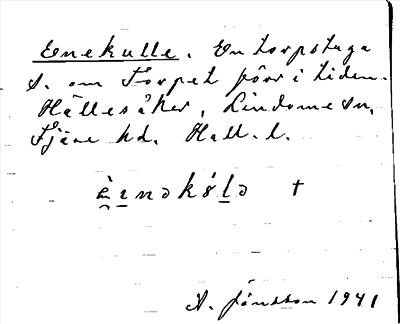 Enekulle. En torpstuga
S. om Torpet förr i tiden.
Hällesåker, Lindome sn,
Fjäre hd. Hall. l.
è̱ı̱nəkǿ̱lə †
A. Jönsson 1941